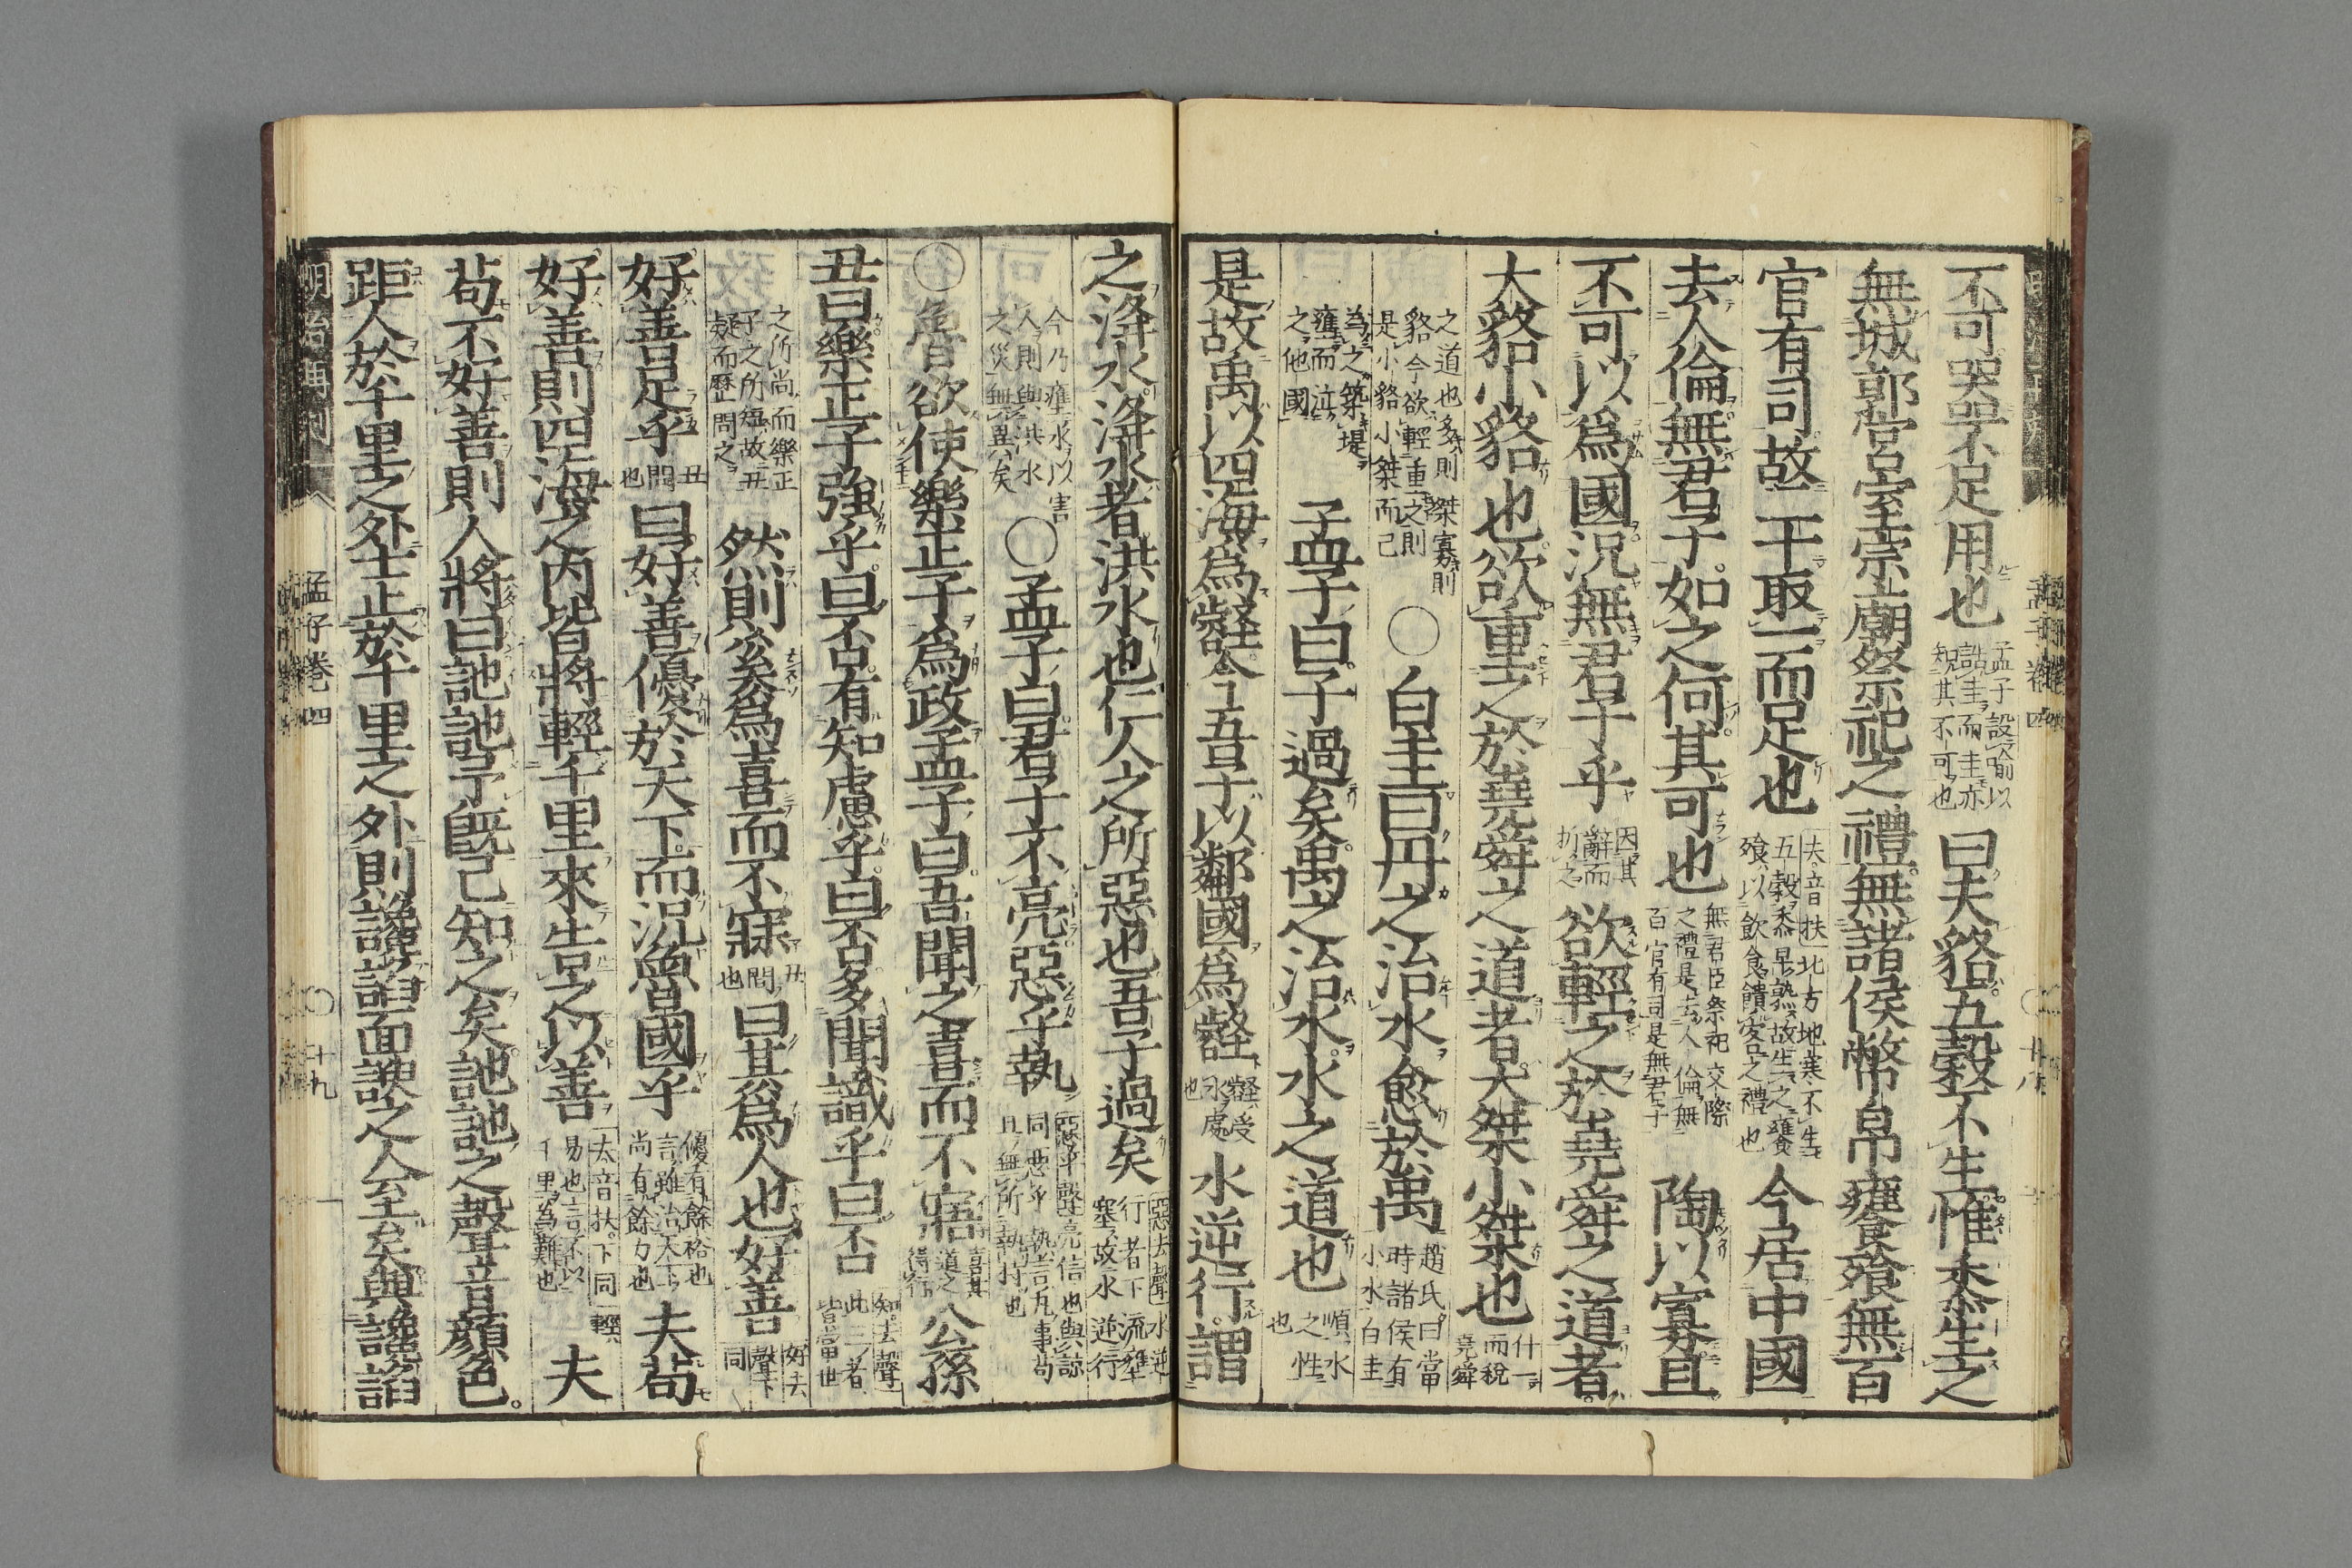 不可器不足用也孟子設喩以詰圭而圭亦知其不可也曰夫貉五穀不生惟黍生之
無城郭宮室宗廟祭祀之禮無諸侯幣帛饔飧無百
官有司故二十取一而足也夫音扶北方地寒不生五穀黍早熟故生之饔飧以飲食饋客之禮也今居中國
去人倫無君子如之何其可也無君臣祭祀交際之禮是去人倫無百官有司是無君子陶以寡且
不可以爲國況無君子乎因其辭而折之欲輕之於堯舜之道者
大貉小貉也欲重之於堯舜之道者大桀小桀也什一而稅堯舜
之道也多則桀寡則貉今欲輕重之則是小貉小桀而已〇白圭曰丹之治水愈於禹趙氏曰當時諸侯有小水白圭
為之築堤壅而注之他國孟子曰子過矣禹之治水水之道也順水之性也
是故禹以四海爲壑今吾子以鄰國爲壑壑受水處也水逆行謂
之洚水洚水者洪水也仁人之所惡也吾子過矣惡去聲水逆行者下流壅塞故水逆行
今乃壅水以害人則與洪水之災無異矣〇孟子曰君子不亮惡乎執惡平聲亮信也與諒同惡乎執言凡事苟且無所執持也
〇魯欲使樂正子爲政孟子曰吾聞之喜而不寐喜其道之得行公孫
丑曰樂正子強乎曰否有知慮乎曰否多聞識乎曰否知去聲此三者皆當世
之所尚而樂正子之所短故丑疑而歷問之然則奚爲喜而不寐丑問也曰其爲人也好善好去聲下同
好善足乎丑問也曰好善優於天下而況魯國乎優有餘裕也言雖治天下尚有餘力也夫苟
好善則四海之内皆將輕千里來告之以善夫音扶下同輕易也言不以千里為難也夫
苟不好善則人將曰訑訑予既已知之矣訑訑之聲音顏色
距人於千里之外士止於千里之外則讒諂面諛之人至矣與讒諂
孟子卷四
〇十九